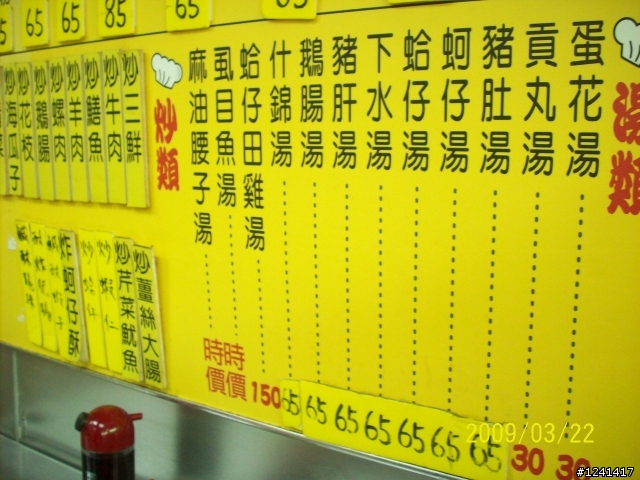 湯類
蛋花湯 30
貢丸湯 30
豬肚湯 65
蚵仔湯 65
蛤仔湯 65
下水湯 65
豬肝湯 65
鵝腸湯 65
什錦湯 65
蛤仔田雞湯 150
虱目魚湯 時價
麻油腰子湯 時價
炒類
炒三鮮
炒牛肉
炒鱔魚
炒羊肉
炒螺肉
炒鵝腸
炒花枝
炒海瓜子
65
65
65
65
炒薑絲大腸
炒芹菜魷魚
炒蝦仁
炸蚵仔酥
2009/03/22
#1241417